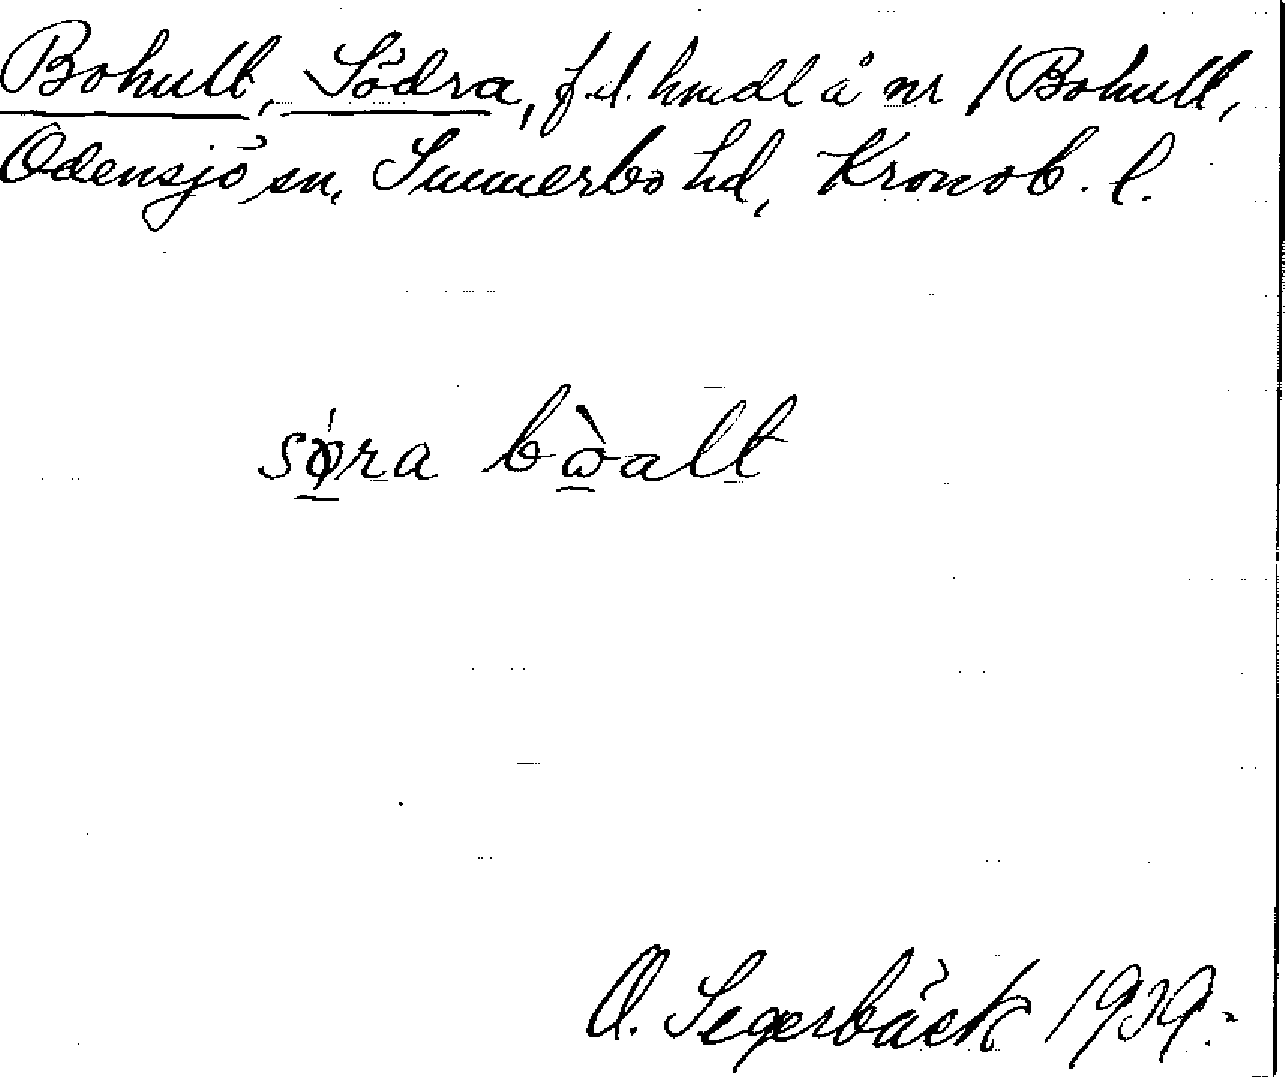 Bohult, Södra, f.d. hmdl å nr 1 Bohult,
Odensjö sn, Sunnerbo hd, Kronob. l.
sø̀ra bɷ̀alt
O. Segerbäck 1939.